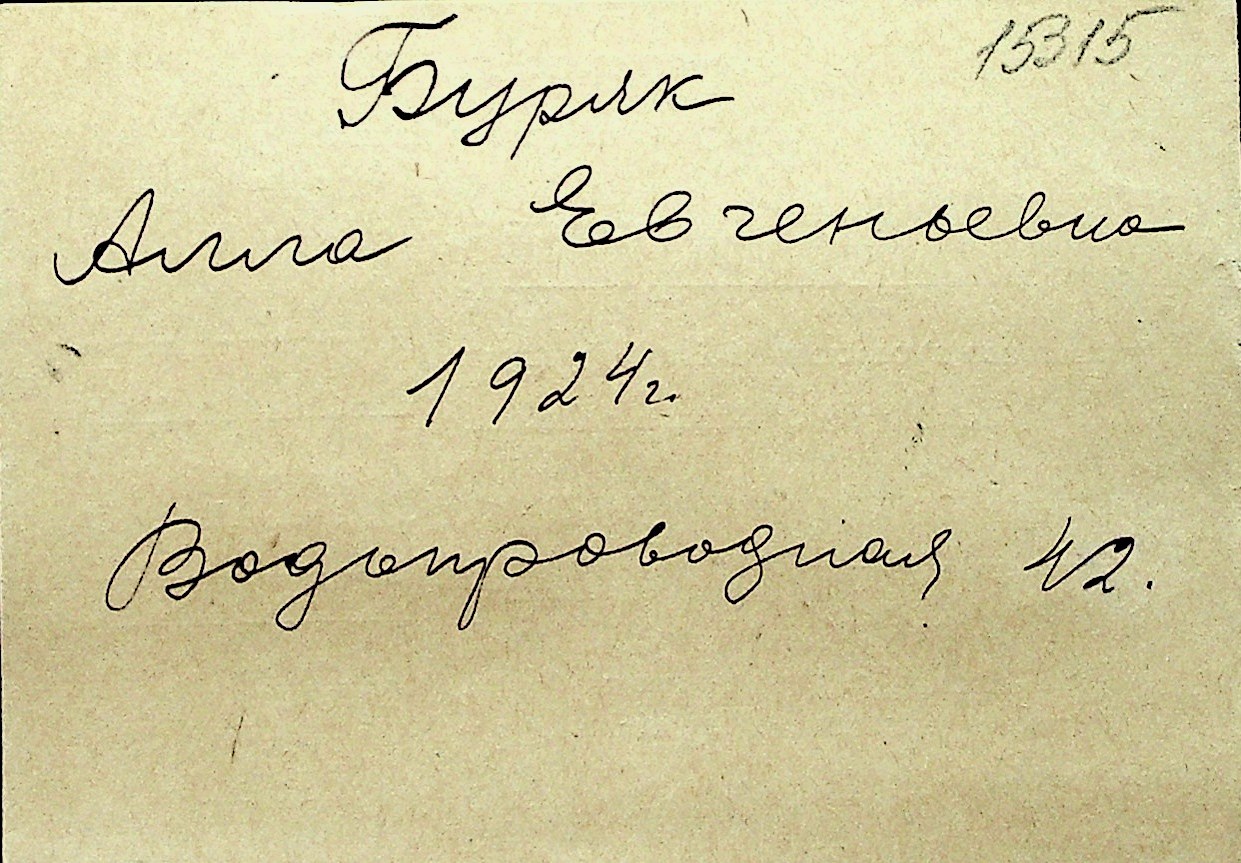 15315
Буряк
Алла Евгеньевна
1924 г.
Водопроводная 42.